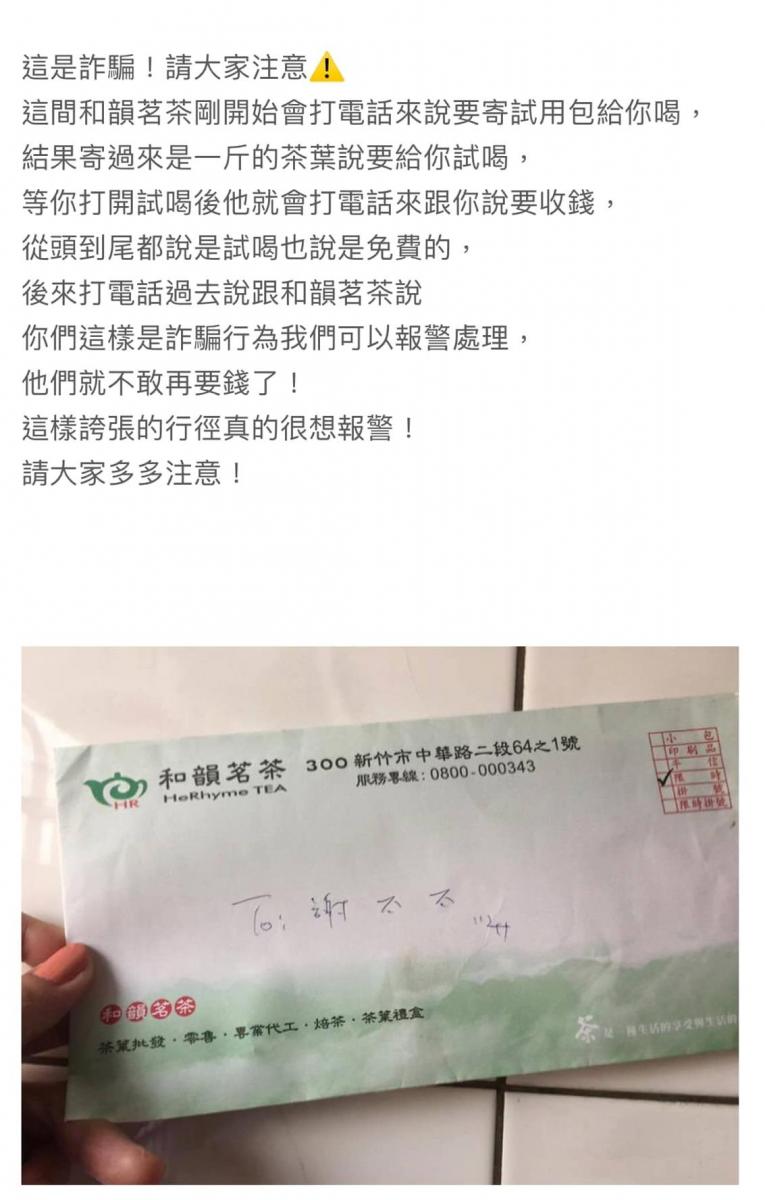 這是詐騙！請大家注意⚠️
這間和韻茗茶剛開始會打電話來說要寄試用包給你喝，
結果寄過來是一斤的茶葉說要給你試喝，
等你打開試喝後他就會打電話來跟你說要收錢，
從頭到尾都說是試喝也說是免費的，
後來打電話過去說跟和韻茗茶說
你們這樣是詐騙行為我們可以報警處理，
他們就不敢再要錢了！
這樣誇張的行徑真的很想報警！
請大家多多注意！
和韻茗茶 300 新竹市中華路二段64之1號
HeRhyme TEA 服務專線：0800-000343
HR
小包
印刷品
平信
✓限時
掛號
限時掛號
To: 謝太太
和韻茗茶
茶葉批發·零售·專業代工·焙茶·茶葉禮盒
茶是一種生活的享受與生活的